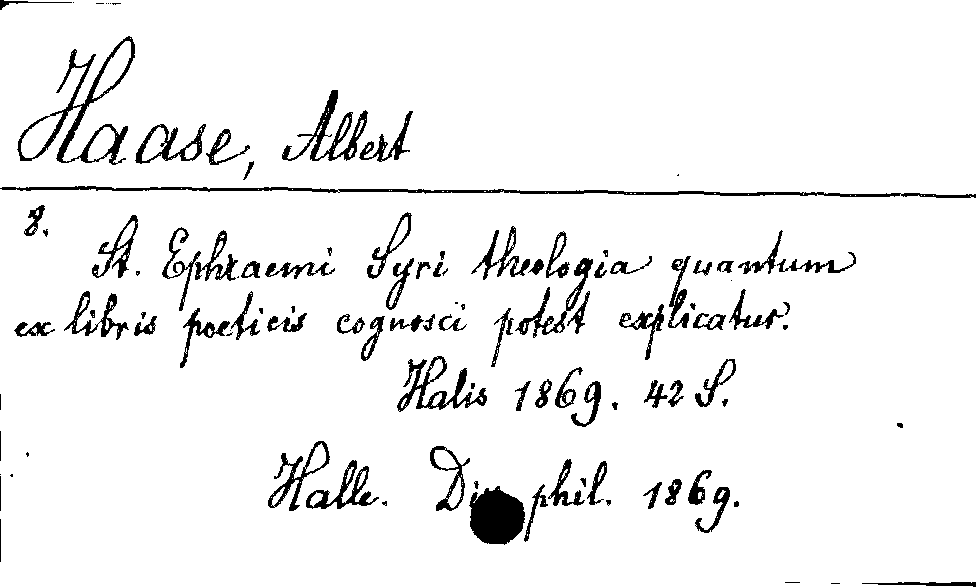 Haase, Albert
8.
St. Ephraemi Syri theologia quantum
ex libris poeticis cognosci potest explicatur.
Halis 1869. 42 S.
Halle. phil. 1869.